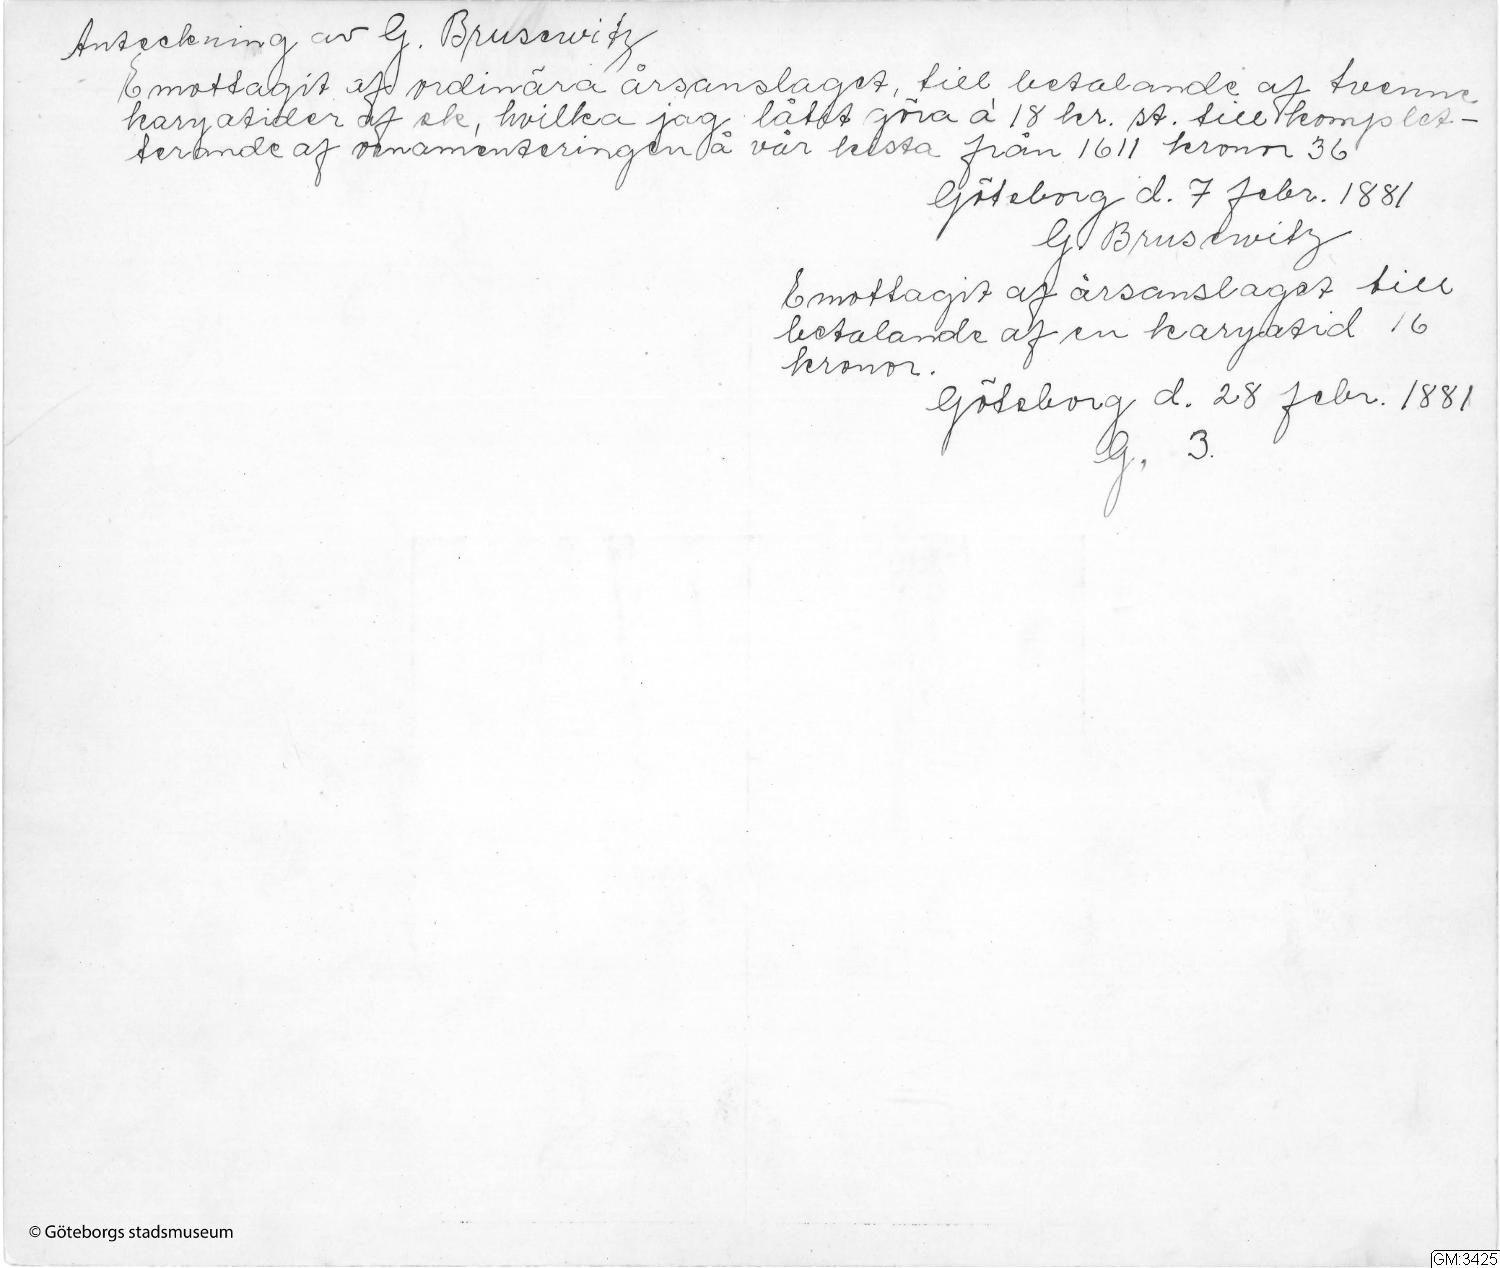 Anteckning av G. Brusewitz
Emottagit af ordinära årsanslaget, till betalande af tvenne
karyatider af ek, hvilka jag låtit göra à 18 kr. st. till komplet-
terande af ornamenteringen å vår kista från 1611 kronor 36
Göteborg d. 7 febr. 1881
G. Brusewitz
Emottagit af årsanslaget till
betalande af en karyatid 16
kronor.
Göteborg d. 28 febr. 1881
G. B.
© Göteborgs stadsmuseum
GM:3425